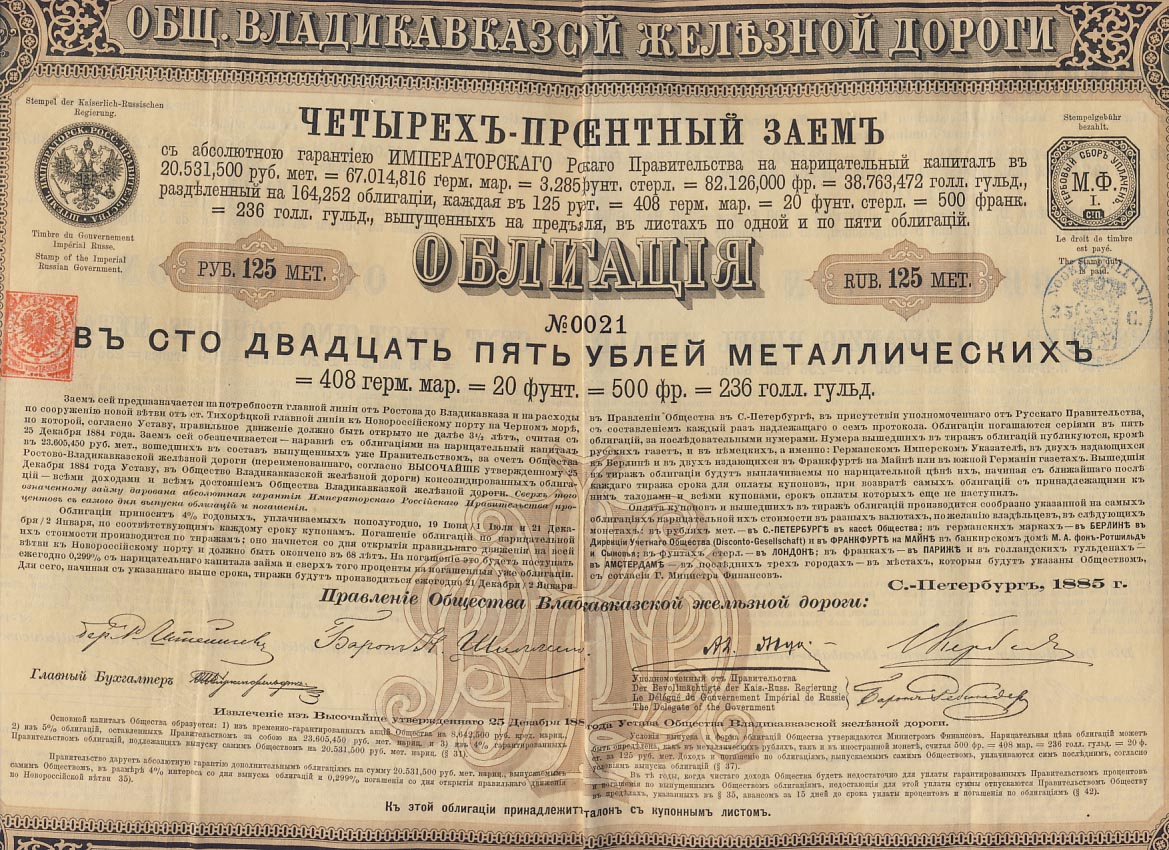 ОБЩ. ВЛАДИКАВКАЗСОЙ ЖЕЛѢЗНОЙ ДОРОГИ
Stempel der Kaiserlich-Russischen
Regierung.
Stempelgebühr
bezahlt.
ЧЕТЫРЕХЪ-ПРЕНТНЫЙ ЗАЕМЪ
съ абсолютною гарантіею ИМПЕРАТОРСКАГО Рскаго Правительства на нарицательный капиталъ въ
20.531,500 руб. мет. = 67.014,816 герм. мар. = 3.285 фунт. стерл. = 82.126,000 фр. = 38.763,472 голл. гульд.,
раздѣленный на 164,252 облигаціи, каждая въ 125 рует. = 408 герм. мар. = 20 фунт. стерл. = 500 франк.
= 236 голл. гульд., выпущенныхъ на предъля, въ листахъ по одной и по пяти облигацій.
ГЕРБОВЫЙ СБОРЪ УПЛАЧЕНЪ.
М.Ф.
I.
СП.
Timbre du Gouvernement
Impérial Russe.
Stamp of the Imperial
Russian Government.
Le droit de timbre
est payé.
The Stamp duty
is paid.
ОБЛИГАЦІЯ
РУБ. 125 МЕТ.
RUB. 125 МЕТ.
№ 0021
ВЪ СТО ДВАДЦАТЬ ПЯТЬ УБЛЕЙ МЕТАЛЛИЧЕСКИХЪ
= 408 герм. мар. = 20 фунт. = 500 фр. = 236 голл. гульд.
Заемъ сей предназначается на потребности главной линіи отъ Ростова до Владикавказа и на расходы
по сооруженію новой вѣтви отъ ст. Тихорѣцкой главной линіи къ Новороссійскому порту на Черномъ морѣ,
по которой, согласно Уставу, правильное движеніе должно быть открыто не далѣе 3½ лѣтъ, считая съ
25 Декабря 1884 года. Заемъ сей обезпечивается — наравнѣ съ облигаціями на нарицательный капиталъ
въ 23.605,450 руб. мет., вошедшихъ въ составъ выпущенныхъ уже Правительствомъ, за счетъ Общества
Ростово-Владикавказской желѣзной дороги (переименованнаго, согласно ВЫСОЧАЙШЕ утвержденному 25
Декабря 1884 года Уставу, въ Общество Владикавказской желѣзной дороги) консолидованныхъ облига-
цій — всѣми доходами и всѣмъ достояніемъ Общества Владикавказской желѣзной дороги. Сверхъ того
означенному займу дарована абсолютная гарантія Императорскаго Россійскаго Правительства про-
центовъ съ самаго дня выпуска облигацій и погашенія.
Облигаціи приносятъ 4% годовыхъ, уплачиваемыхъ полугодно, 19 Іюня / 1 Іюля и 21 Дека-
бря / 2 Января, по соотвѣтствующимъ каждому сроку купонамъ. Погашеніе облигацій по нарицательной
ихъ стоимости производится по тиражамъ; оно начнется со дня открытія правильнаго движенія по всей
вѣтви къ Новороссійскому порту и должно быть окончено въ 68 лѣтъ. На погашеніе это будетъ поступать
ежегодно 0,299% съ нарицательнаго капитала займа и сверхъ того проценты на погашенныя уже облигаціи.
Для сего, начиная съ указаннаго выше срока, тиражи будутъ производиться ежегодно 21 Декабря / 2 Января
въ Правленіи Общества въ С.-Петербургѣ, въ присутствіи уполномоченнаго отъ Русскаго Правительства,
съ составленіемъ каждый разъ надлежащаго о семъ протокола. Облигаціи погашаются серіями въ пять
облигацій, за послѣдовательными нумерами. Нумера вышедшихъ въ тиражъ облигацій публикуются, кромѣ
русскихъ газетъ, и въ нѣмецкихъ, а именно: Германскомъ Имперскомъ Указателѣ, въ двухъ издающихся
въ Берлинѣ и въ двухъ издающихся въ Франкфуртѣ на Майнѣ или въ южной Германіи газетахъ. Вышедшія
въ тиражъ облигаціи будутъ выплачиваемы по нарицательной цѣнѣ ихъ, начиная съ ближайшаго послѣ
каждаго тиража срока для оплаты купоновъ, при возвратѣ самыхъ облигацій съ принадлежащими къ
нимъ талонами и всѣми купонами, срокъ оплаты которыхъ еще не наступилъ.
Оплата купоновъ и вышедшихъ въ тиражъ облигацій производится сообразно указанной на самыхъ
облигаціяхъ нарицательной ихъ стоимости въ разныхъ валютахъ, по желанію владѣльцевъ, въ слѣдующихъ
монетахъ: въ рубляхъ мет. — въ С.-ПЕТЕРБУРГѢ въ кассѣ Общества; въ германскихъ маркахъ — въ БЕРЛИНѢ въ
Дирекціи Учетнаго Общества (Disconto-Gesellschaft) и въ ФРАНКФУРТѢ на МАЙНѢ въ банкирскомъ домѣ М. А. фонъ-Ротшильдъ
и Сыновья; въ фунтахъ стерл. — въ ЛОНДОНѢ; въ франкахъ — въ ПАРИЖѢ и въ голландскихъ гульденахъ —
въ АМСТЕРДАМѢ — въ послѣднихъ трехъ городахъ — въ мѣстахъ, которыя будутъ указаны Обществомъ,
съ согласія Г. Министра Финансовъ.
С.-Петербургъ, 1885 г.
Правленіе Общества Влакавказской желѣзной дороги:
Баронъ
Главный Бухгалтеръ
Уполномоченный отъ Правительства
Der Bevollmächtigte der Kais-Russ. Regierung
Le Délégué du Gouvernement Impérial de Russie
The Delegate of the Government
Баронъ
Извлеченіе изъ Высочайше утвержденнаго 25 Декабря 188 года Устава Общества Владикавказской желѣзной дороги.
Основной капиталъ Общества образуется: 1) изъ временно-гарантированныхъ акцій Общества на 8,642,500 руб. кред. нариц.
2) изъ 5% облигацій, оставленныхъ Правительствомъ за собою на 23.605,450 руб. мет. нариц. и 3) изъ 4% гарантированныхъ
Правительствомъ облигацій, подлежащихъ выпуску самимъ Обществомъ на 20.531,500 руб. мет. нариц. (§ 31).
Правительство даруетъ абсолютную гарантію дополнительнымъ облигаціямъ на сумму 20.531,500 руб. мет. нариц. выпускаемымъ
самимъ Обществомъ, въ размѣрѣ 4% интереса со дня выпуска облигацій и 0,299% погашенія со дня открытія правильнаго движенія
по Новороссійской вѣтви 35).
Условія выпуска и форма облигацій Общества утверждаются Министромъ Финансовъ. Нарицательная цѣна облигацій можетъ
быть опредѣлена, какъ въ металлическихъ рубляхъ, такъ и въ иностранной монетѣ, считая 500 фр. = 408 мар. = 236 гол. г. = 20 ф.
ст. за 125 руб. мет. Доходъ и погашеніе по облигаціямъ, выпускаемымъ самимъ Обществомъ, уплачиваются симъ послѣднимъ, согласно
§ 37).
Въ тѣ годы, когда чистаго дохода Общества будетъ недостаточно для уплаты гарантированныхъ Правительствомъ процентовъ
и погашенія по выпущеннымъ Обществомъ облигаціямъ, недостающія для этой уплаты суммы отпускаются Правительствомъ Обществу
въ предѣлахъ, указанныхъ въ § 35, авансомъ за 15 дней до срока уплаты процентовъ и погашенія по облигаціямъ (§ 42).
Къ этой облигаціи принадлежитталонъ съ купоннымъ листомъ.